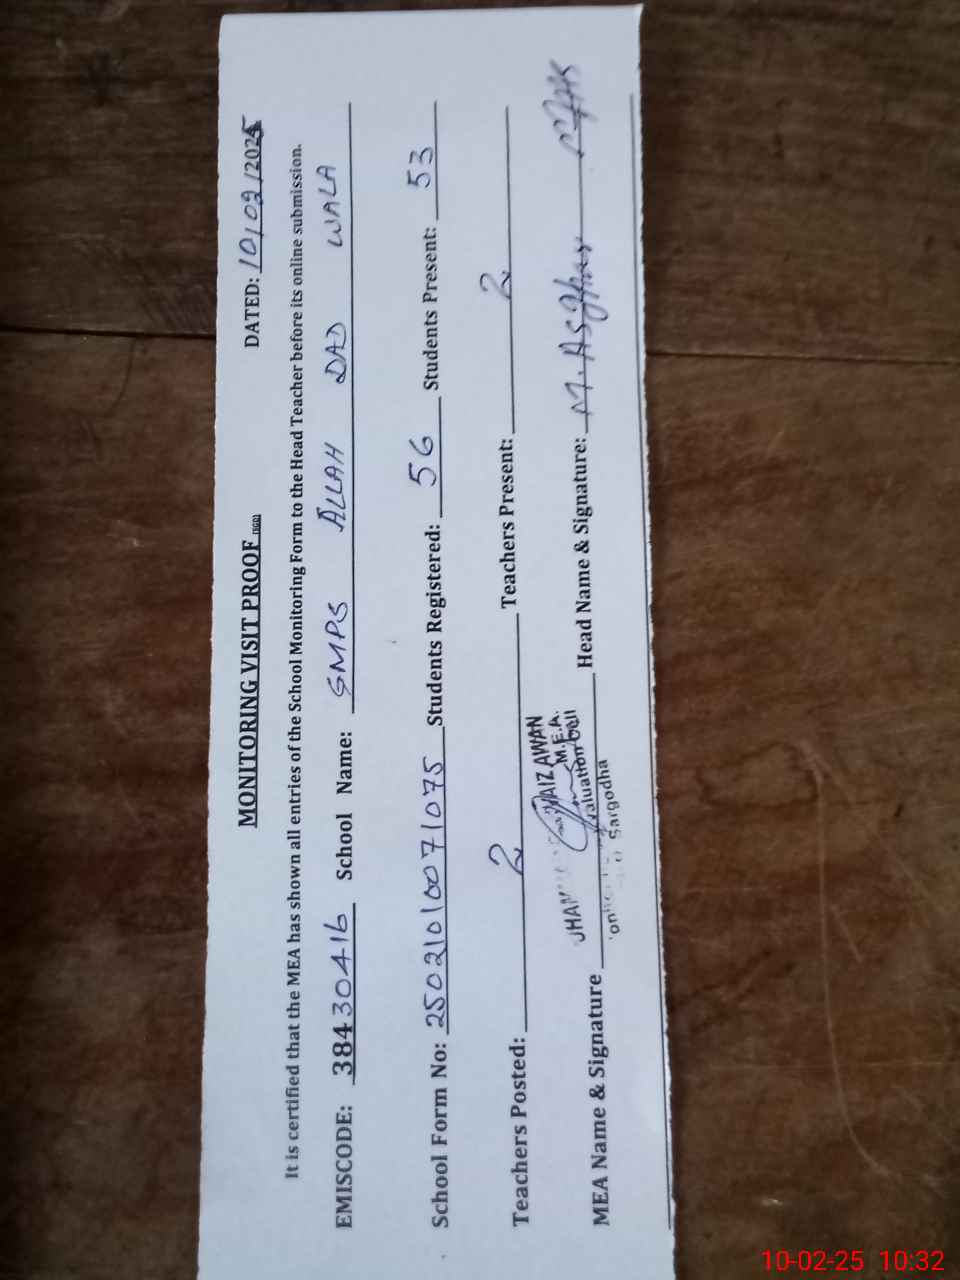 MONITORING VISIT PROOF (SGD) DATED: 10/02/2025
It is certified that the MEA has shown all entries of the School Monitoring Form to the Head Teacher before its online submission.
EMISCODE: 38430416 School Name: GMPS ALLAH DAD WALA
School Form No: 25021010071075 Students Registered: 56 Students Present: 53
Teachers Posted: 2 Teachers Present: 2
AIZ AWAN
M.E.A.
valuation Cell
Sargodha
MEA Name & Signature Head Name & Signature: M. Asghar
10-02-25 10:32